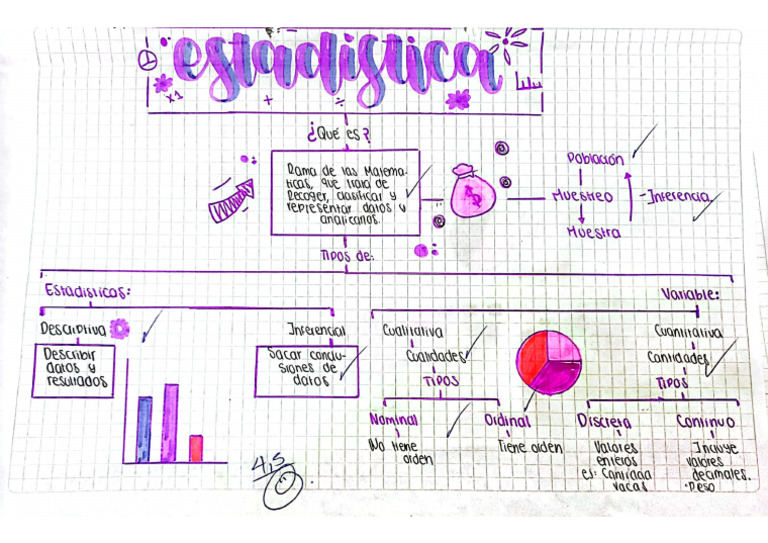 estadistica
x1
+
÷
¿Qué es?
Rama de las Matema-
ticas, que trata de
Recoger, clasificar y
representar datos y
analizarlos.
$
Población
Muestreo
- Inferencia.
Muestra
Tipos de:
Estadisticos:
Variable:
Descriptiva
Inferencial
Cualitativa
Cuantitativa
Describir
datos y
resultados
Sacar conclu-
siones de
datos
Cualidades
Cantidades
TIPOS
TIPOS
Nominal
Ordinal
Discreta
Continuo
No tiene
orden
Tiene orden
Valores
enteros
ej: Cantidad
vacas
Incluye
valores
decimales.
·Peso
4,5